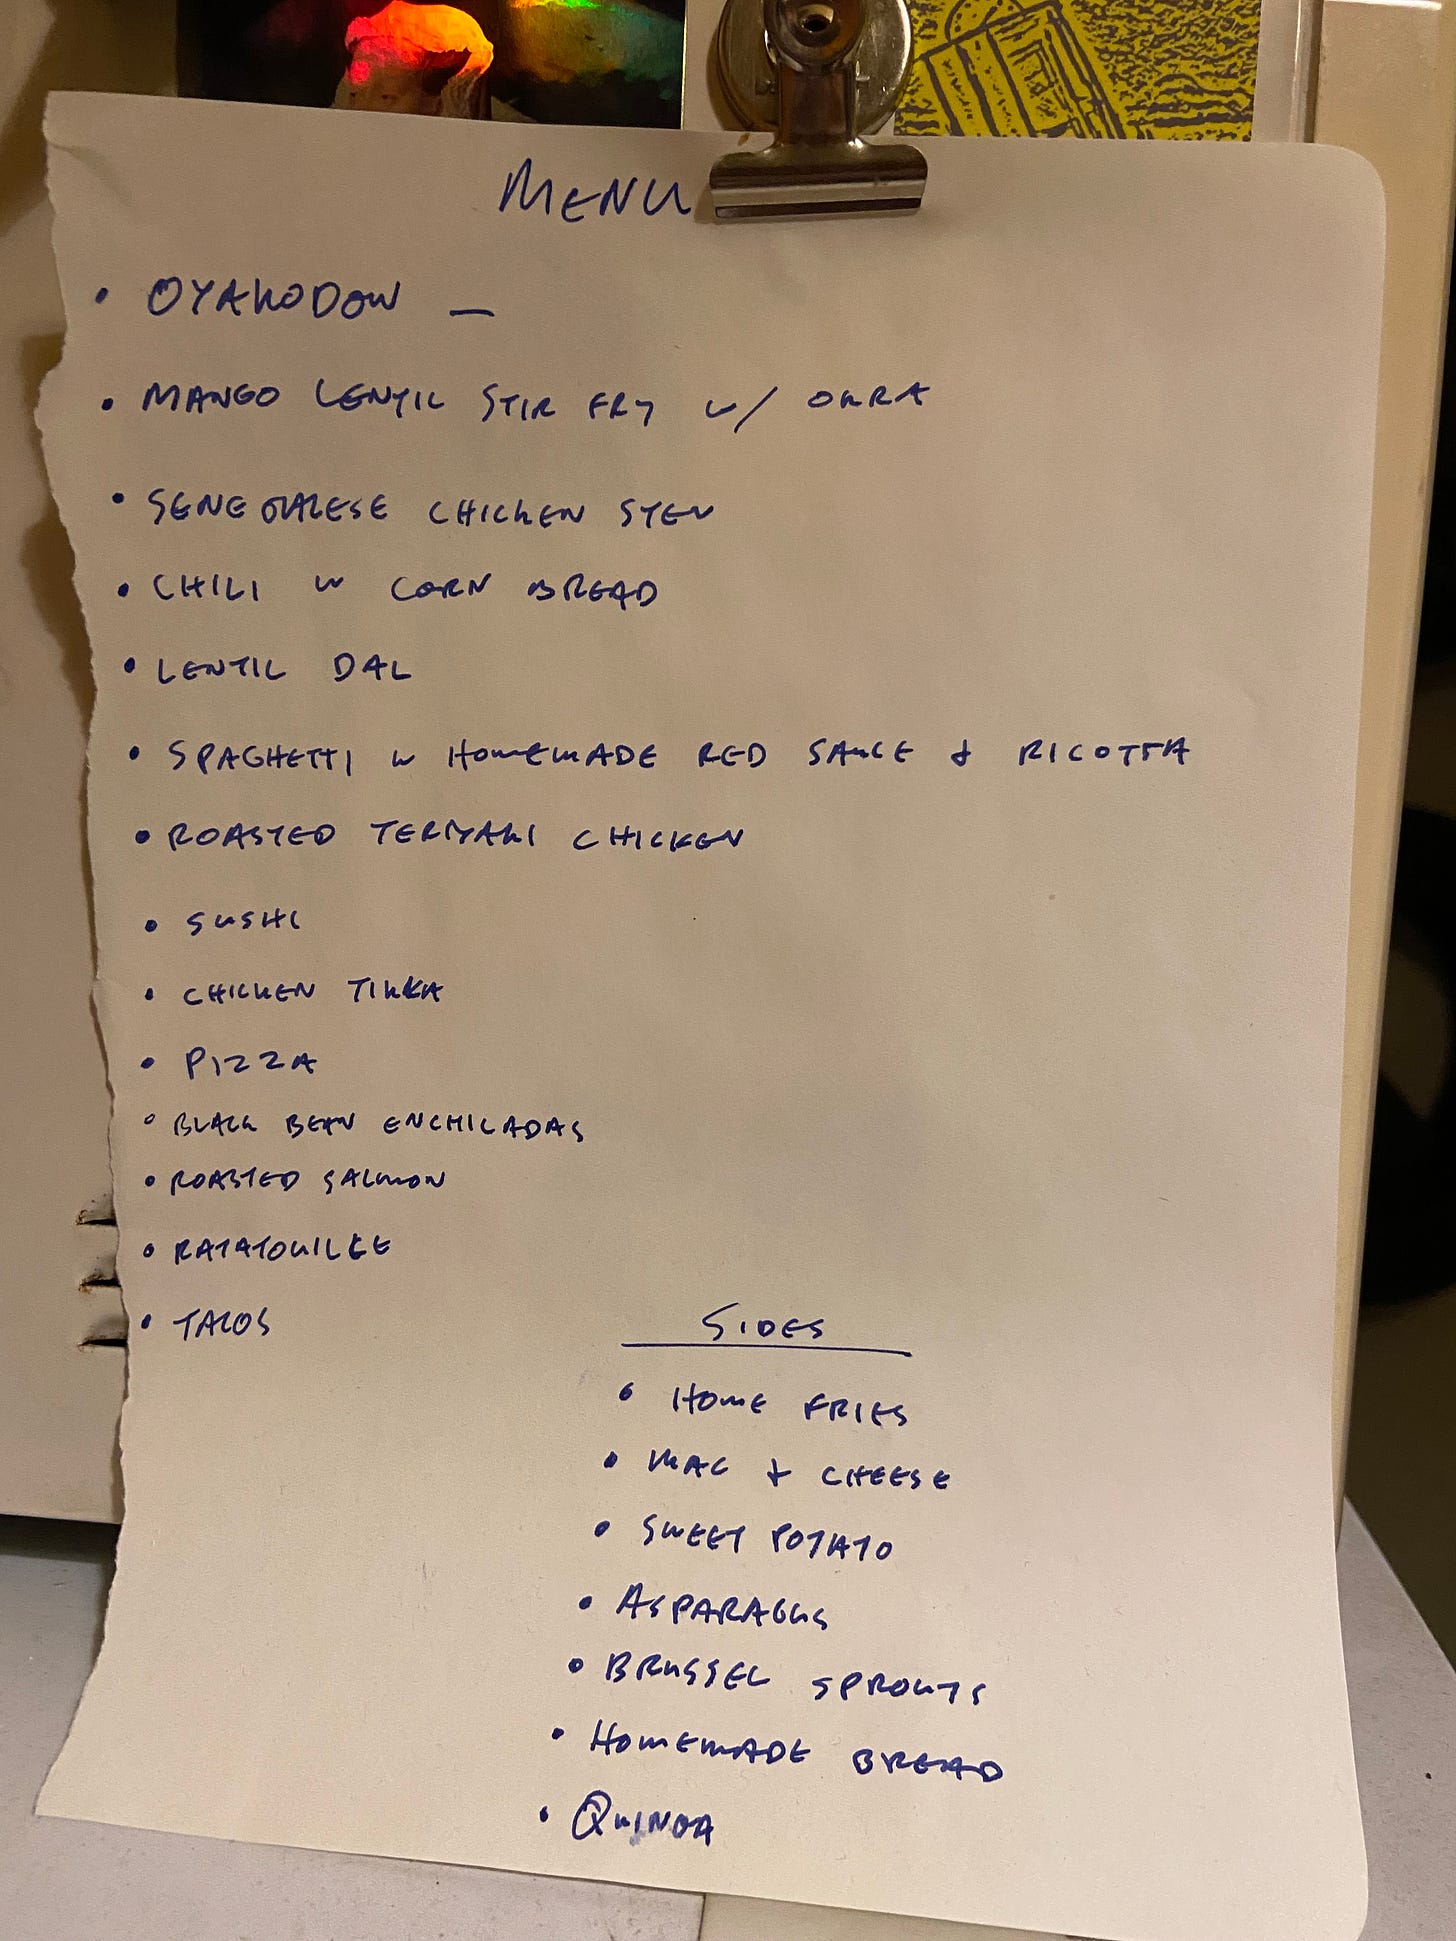 MENU
• OYAKODON —
• MANGO LENTIL STIR FRY w/ OKRA
• SENEGALESE CHICKEN STEW
• CHILI w CORN BREAD
• LENTIL DAL
• SPAGHETTI w HOMEMADE RED SAUCE & RICOTTA
• ROASTED TERIYAKI CHICKEN
• SUSHI
• CHICKEN TIKKA
• PIZZA
• BLACK BEAN ENCHILADAS
• ROASTED SALMON
• RATATOUILLE
• TACOS
SIDES
• HOME FRIES
• MAC & CHEESE
• SWEET POTATO
• ASPARAGUS
• BRUSSEL SPROUTS
• HOMEMADE BREAD
• QUINOA